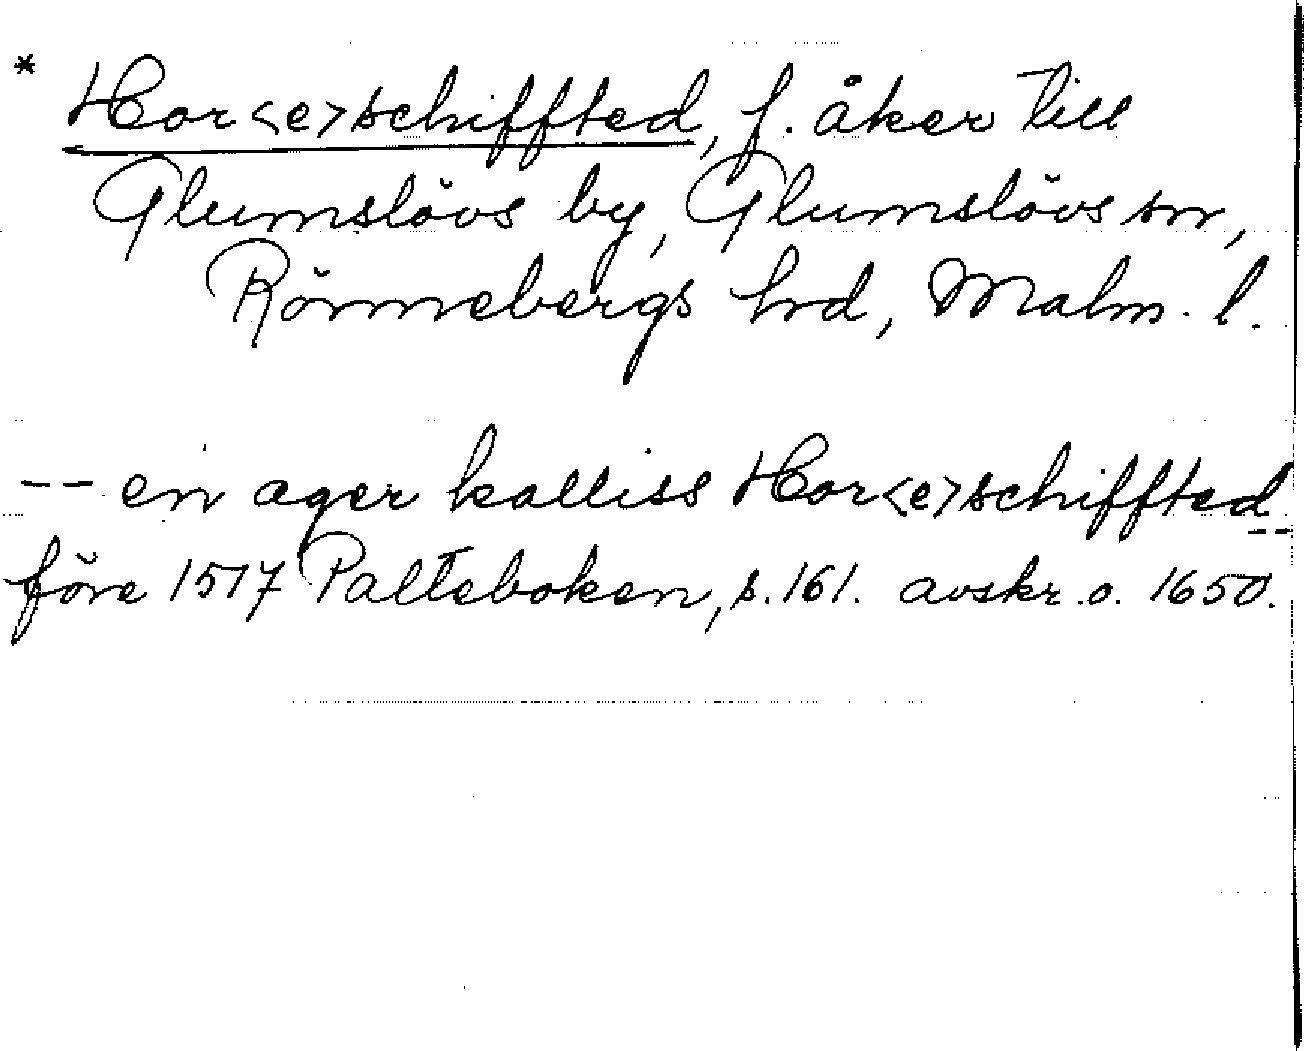 * Hor<e>schiffted, f. åker till
Glumslövs by, Glumslövs sn,
Rönnebergs hrd, Malm. l.
-- en ager kalliss Hor<e>schiffted --
före 1517 Palteboken, s. 161. avskr. o. 1650.